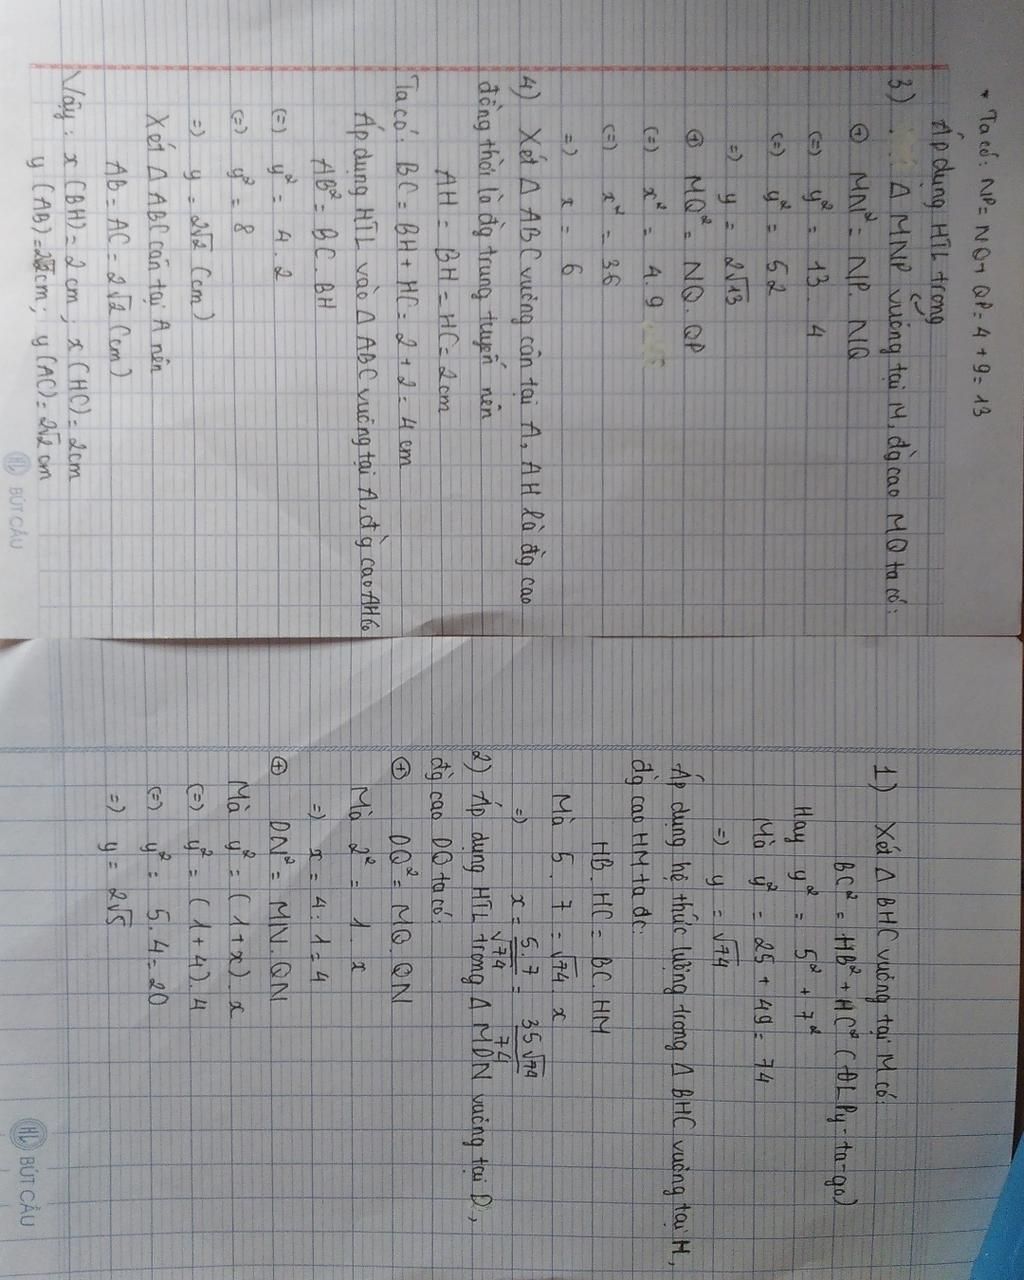 * Ta có: NP = NQ + QP = 4 + 9 = 13
Áp dụng HTL trong
3) Δ MNP vuông tại M, đg cao MQ ta có:
⊕ MN² = NP. NQ
(=) y² = 13. 4
(=) y² = 52
=) y = 2√13
⊕ MQ² = NQ. QP
(=) x² = 4.9
(=) x² = 36
=) x = 6
4) Xét Δ ABC vuông cân tại A, AH là đg cao
đồng thời là đg trung tuyến nên
AH = BH = HC = 2cm
Ta có: BC = BH + HC = 2 + 2 = 4 cm
Áp dụng HTL vào Δ ABC vuông tại A, đg cao AH có
AB² = BC. BH
(=) y² = 4. 2
(=) y² = 8
=) y = 2√2 (cm)
Xét Δ ABC cân tại A nên
AB = AC = 2√2 (cm)
Vậy: x (BH) = 2 cm; x (HC) = 2cm
y (AB) = 2√2cm; y (AC) = 2√2 cm
HL BÚT CẦU
1) Xét Δ BHC vuông tại M có:
BC² = HB² + HC² (ĐL Py-ta-go)
Hay y² = 5² + 7²
Mà y² = 25 + 49 = 74
=) y = √74
Áp dụng hệ thức lượng trong Δ BHC vuông tại H,
đg cao HM ta đc:
HB. HC = BC. HM
Mà 5. 7 = √74. x
=) x = 5.7/√74 = 35√74/74
2) Áp dụng HTL trong Δ MDN vuông tại D,
đg cao DQ ta có:
⊕ DQ² = MQ. QN
Mà 2² = 1. x
=) x = 4: 1 = 4
⊕ DN² = MN. QN
Mà y² = (1 + x). x
(=) y² = (1 + 4). 4
(=) y² = 5. 4 = 20
=) y = 2√5
HL BÚT CẦU